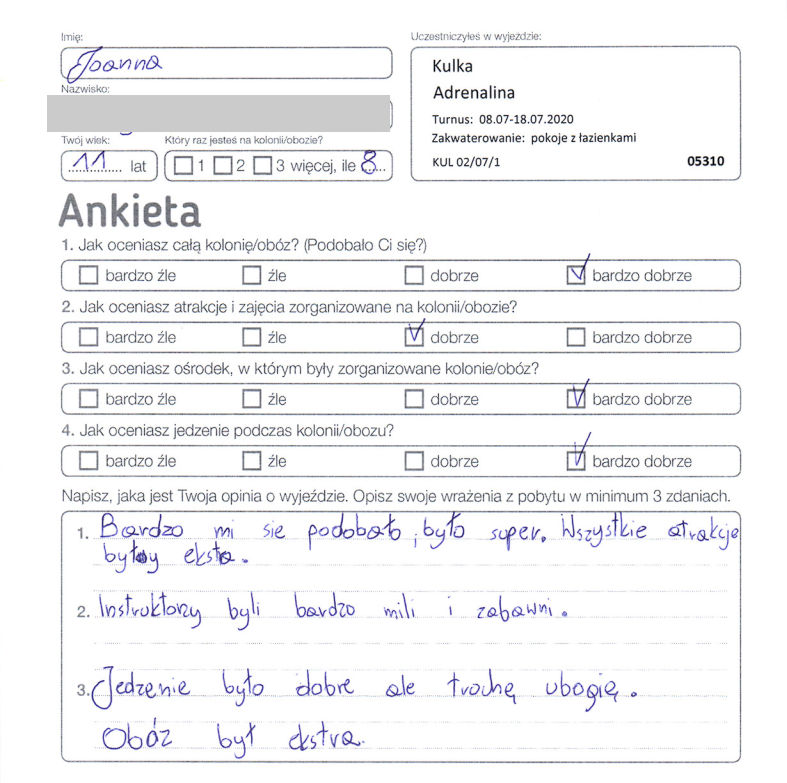 Imię:
Joanna
Nazwisko:
Twój wiek:
11 lat
Który raz jesteś na kolonii/obozie?
1 2 3 więcej, ile 8
Uczestniczyłeś w wyjeździe:
Kulka
Adrenalina
Turnus: 08.07-18.07.2020
Zakwaterowanie: pokoje z łazienkami
KUL 02/07/1 05310
Ankieta
1. Jak oceniasz całą kolonię/obóz? (Podobało Ci się?)
bardzo źle źle dobrze bardzo dobrze
2. Jak oceniasz atrakcje i zajęcia zorganizowane na kolonii/obozie?
bardzo źle źle dobrze bardzo dobrze
3. Jak oceniasz ośrodek, w którym były zorganizowane kolonie/obóz?
bardzo źle źle dobrze bardzo dobrze
4. Jak oceniasz jedzenie podczas kolonii/obozu?
bardzo źle źle dobrze bardzo dobrze
Napisz, jaka jest Twoja opinia o wyjeździe. Opisz swoje wrażenia z pobytu w minimum 3 zdaniach.
1. Bardzo mi sie podobało, było super. Wszystkie atrakcje
były ekstra.
2. Instruktorzy byli bardzo mili i zabawni.
3. Jedzenie było dobre ale trochę ubogię.
Obóz był ekstra.